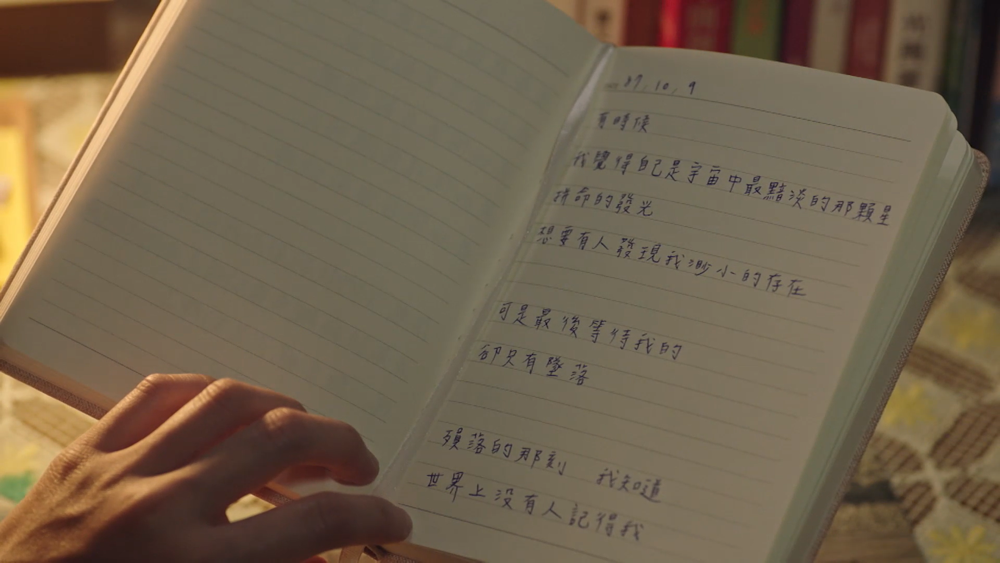 87.10.9
有時候
我覺得自己是宇宙中最黯淡的那顆星
拚命的發光
想要有人發現我渺小的存在
可是最後等待我的
卻只有墜落
殞落的那刻 我知道
世界上沒有人記得我